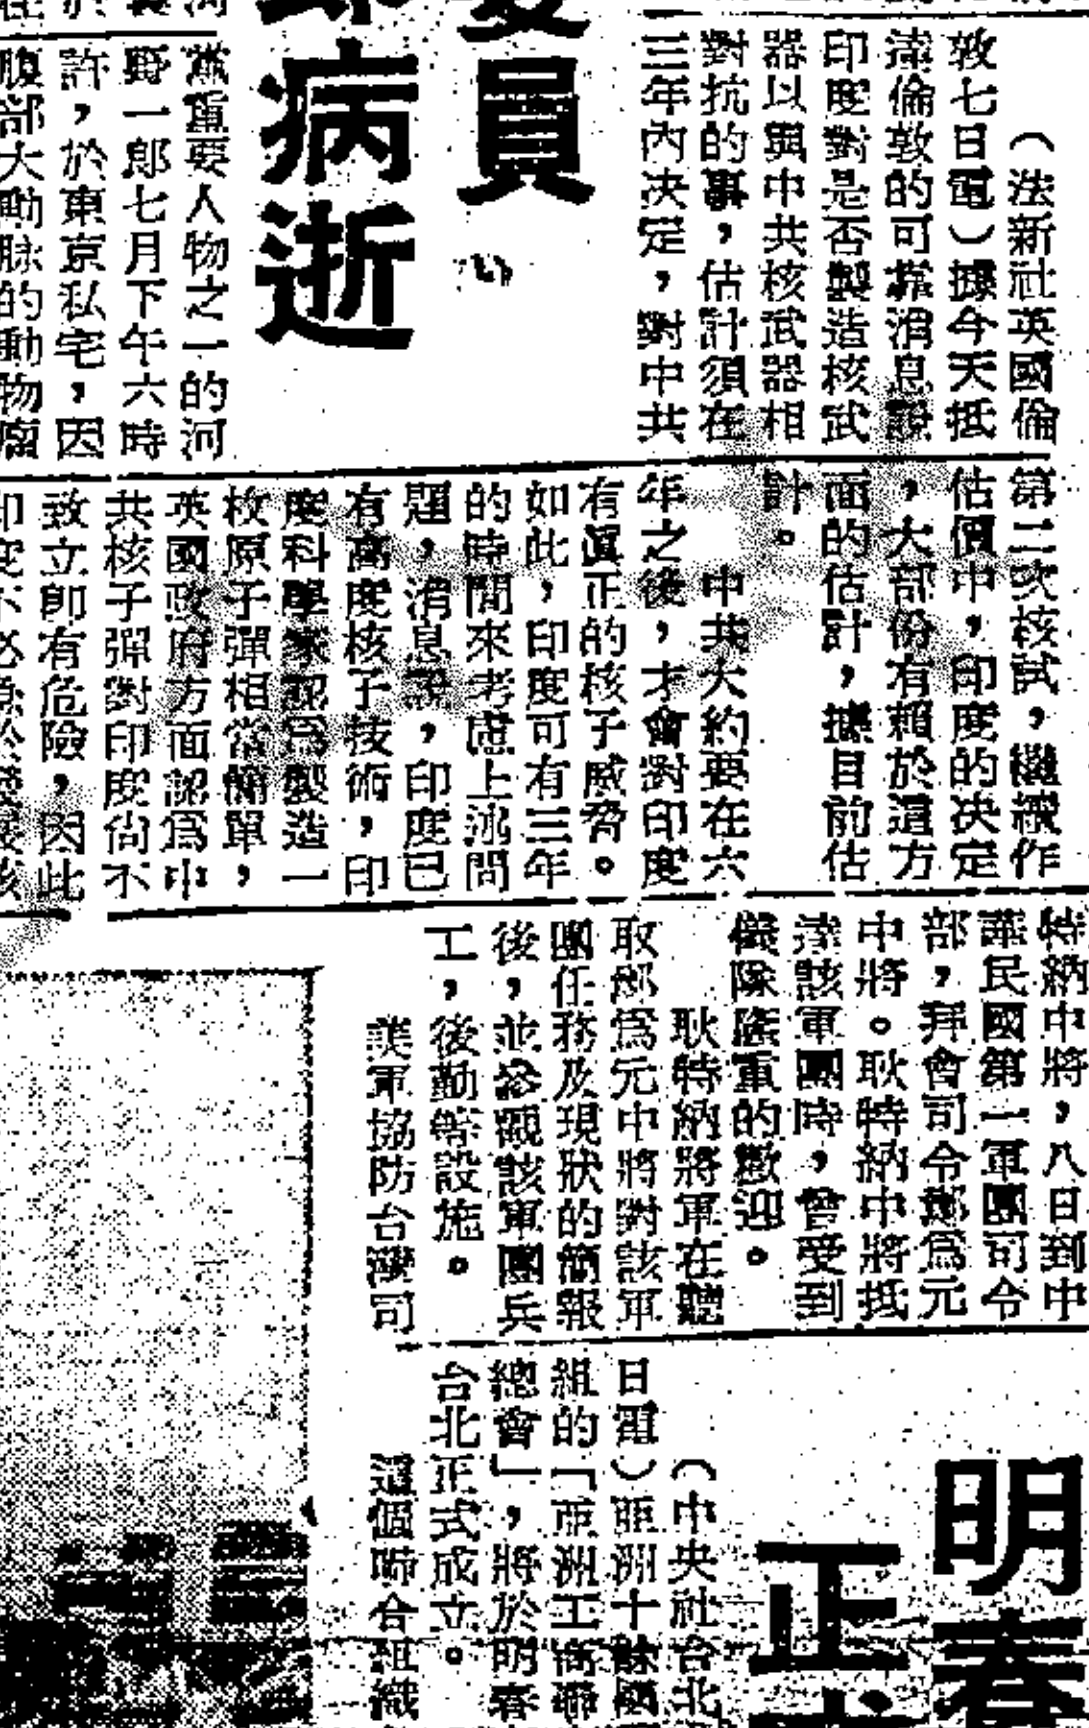 員
病逝
（法新社英國倫
敦七日電）據今天抵
達倫敦的可靠消息說
印度對是否製造核武
器以與中共核武器相
對抗的事，估計須在
三年內決定，對中共
第二次核試，繼續作
估價中，印度的決定
，大部份有賴於這方
面的估計，據目前估
計。
中共大約要在六
年之後，才會對印度
有眞正的核子威脅。
如此，印度可有三年
的時間來考慮上述問
題，消息說，印度已
有高度核子技術，印
度科學家認爲製造一
枚原子彈相當簡單，
英國政府方面認爲中
共核子彈對印度尚不
致立卽有危險，因此
黨重要人物之一的河
野一郎七月下午六時
許，於東京私宅，因
腹部大動脉的動物瘤
特納中將，八日到中
華民國第一軍團司令
部，拜會司令鄭爲元
中將。耿特納中將抵
達該軍團時，曾受到
儀隊隆重的歡迎。
耿特納將軍在聽
取鄭爲元中將對該軍
團任務及現狀的簡報
後，並參觀該軍團兵
工，後勤等設施。
美軍協防台灣司
明春
正
（中央社台北
日電）亞洲十餘國
組的「亞洲工商聯
總會」，將於明春
台北正式成立。
這個聯合組織